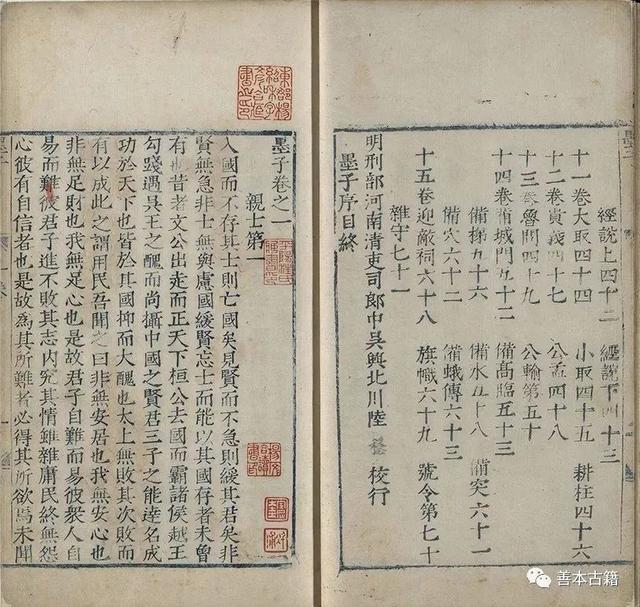 經說上四十二 經說下四十三
十一卷大取四十四 小取四十五 耕柱四十六
十二卷貴義四十七 公孟四十八
十三卷魯問四十九 公輸第五十
十四卷備城門五十二 備高臨五十三
備梯五十六 備水五十八 備突六十一
備穴六十二 備蛾傳六十三
十五卷迎敵祠六十八 旗幟六十九 號令第七十
雜守七十一
明刑部河南清吏司郎中吳興北川陸 校行
墨子序目終
東郡楊
紹和字
彥合藏
書之印
墨子卷之一
親士第一
入國而不存其士則亡國矣見賢而不急則緩其君矣非
賢無急非士無與慮國緩賢忘士而能以其國存者未曾
有也昔者文公出走而正天下桓公去國而霸諸侯越王
勾踐遇吳王之醜而尚攝中國之賢君三子之能達名成
功於天下也皆於其國抑而大醜也太上無敗其次敗而
有以成此之謂用民吾聞之曰非無安居也我無安心也
非無足財也我無足心也是故君子自難而易彼衆人自
易而難彼君子進不敗其志內究其情雖雜庸民終無怨
心彼有自信者也是故為其所難者必得其所欲焉未聞
善本古籍